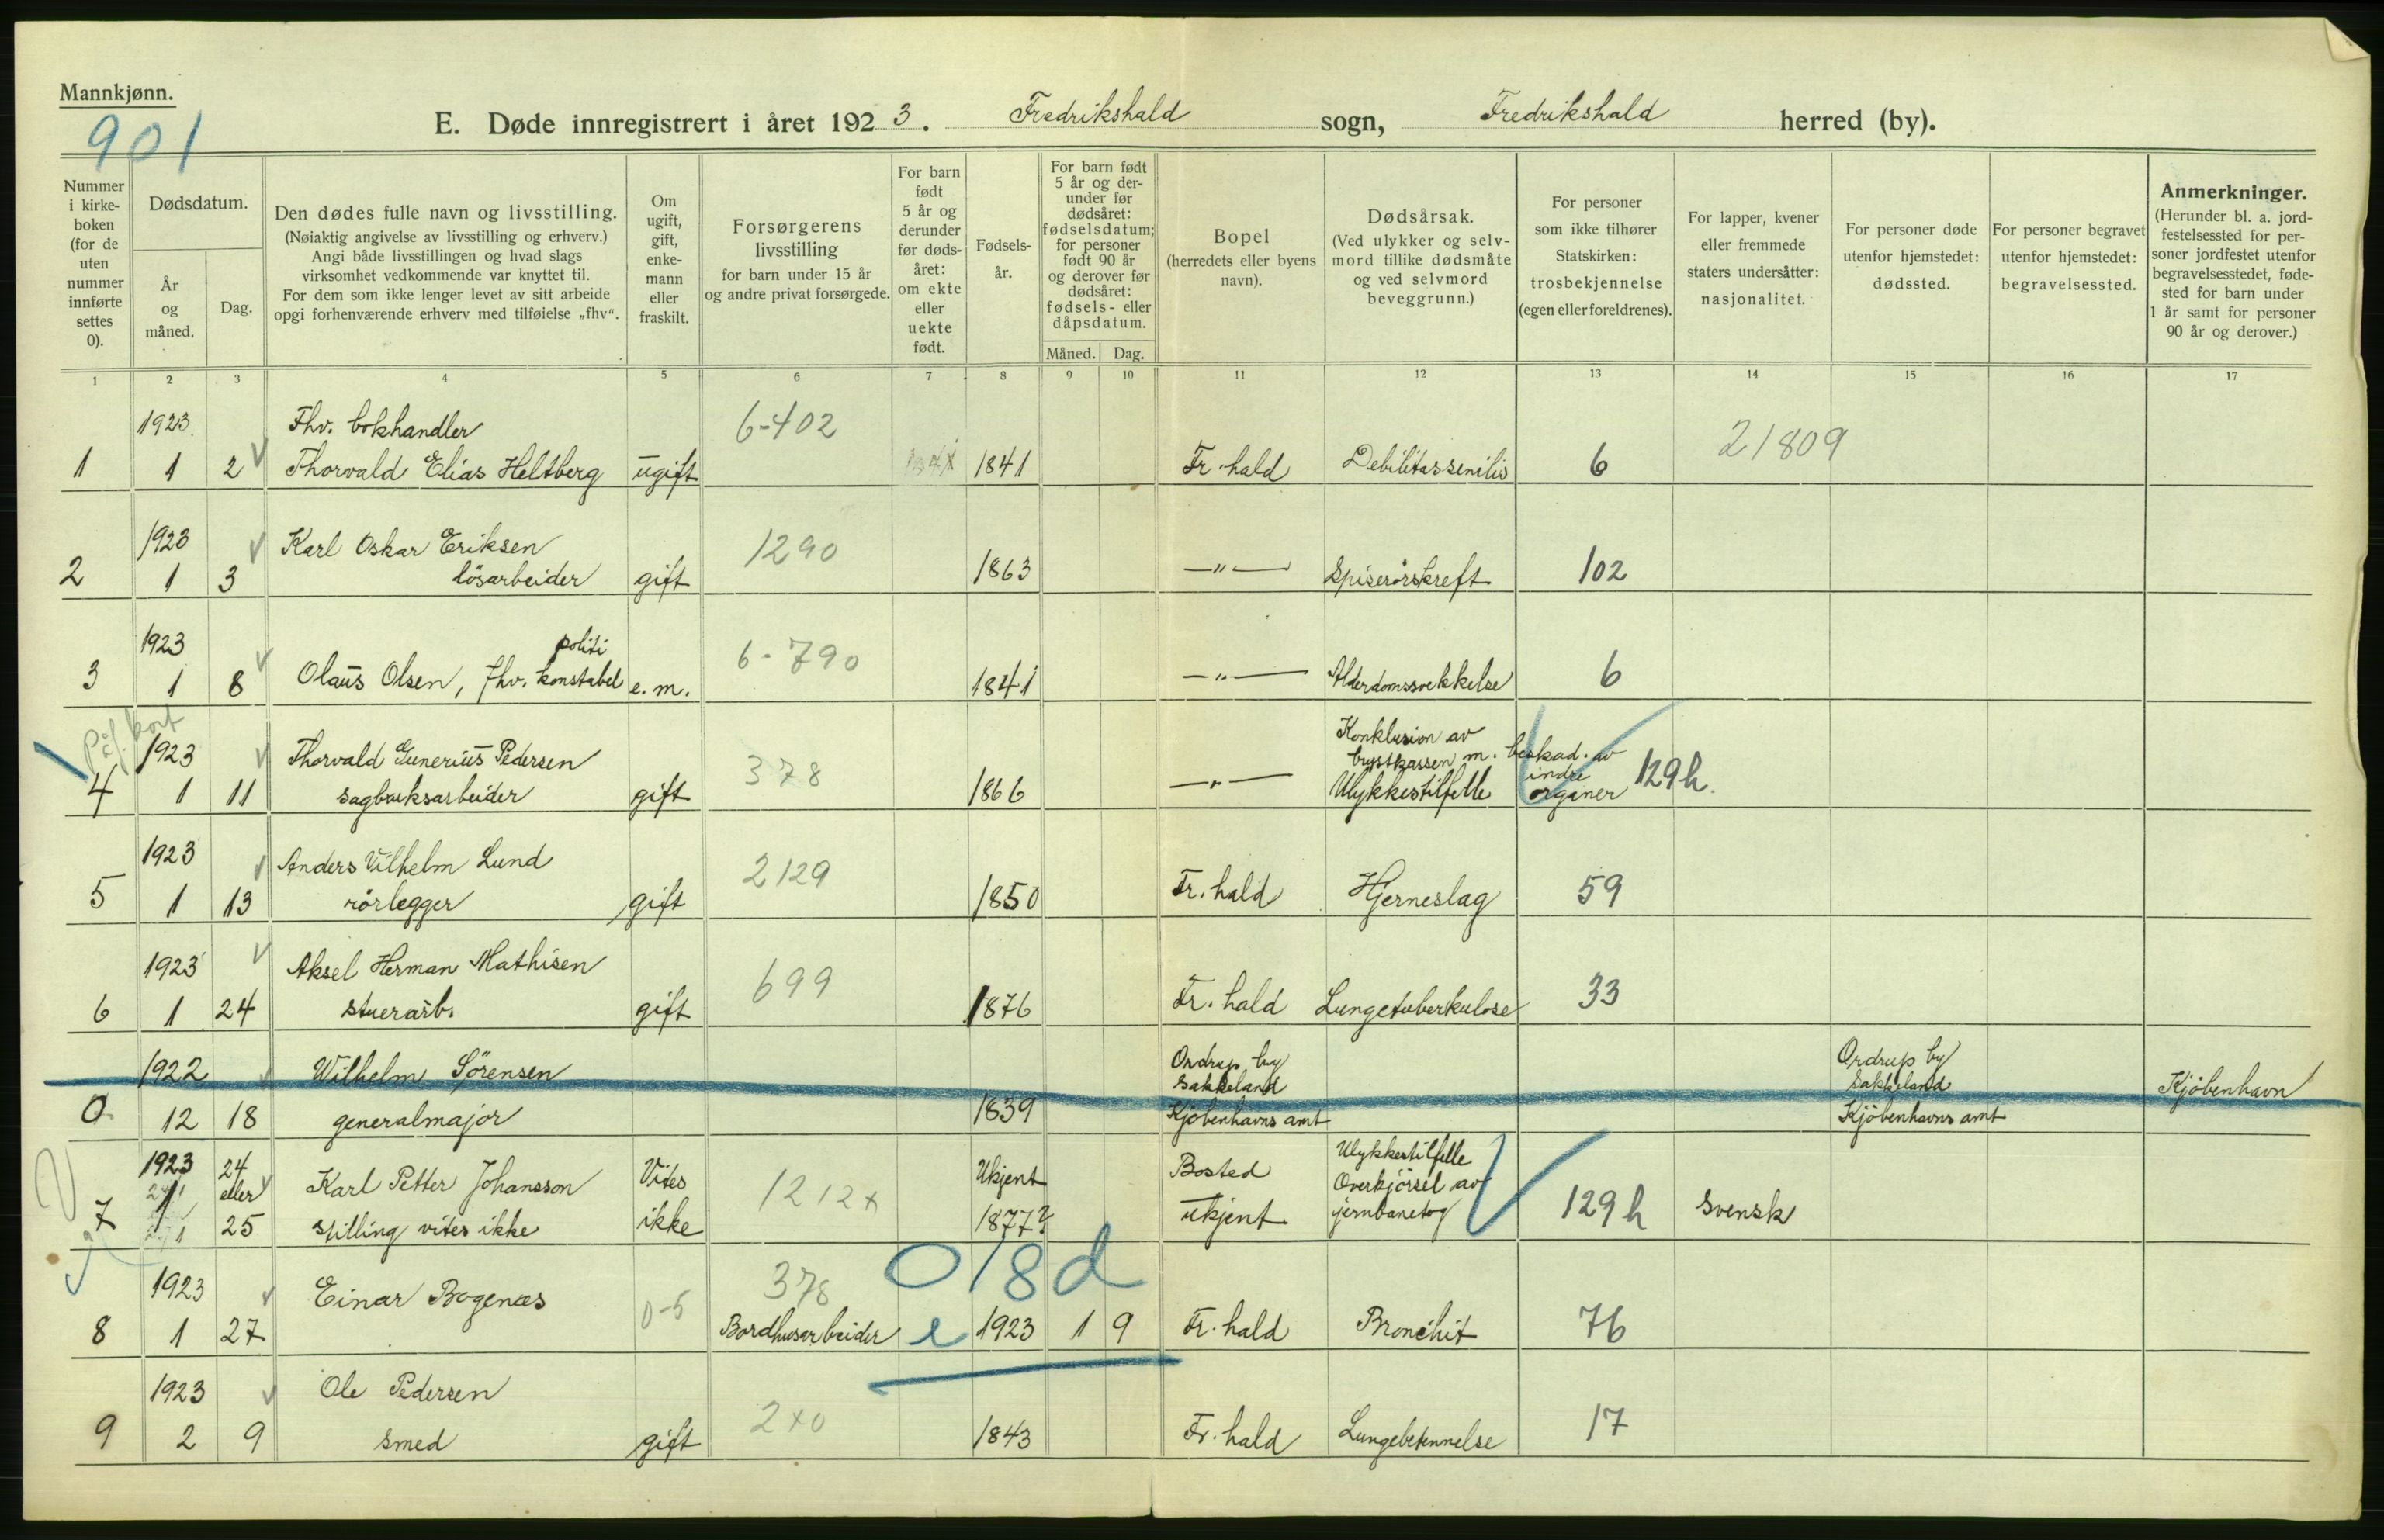 Mannkjønn.
901
E. Døde innregistrert i året 1923. Fredrikshald sogn, Fredrikshald herred (by).
Nummer i kirke-boken (for de uten nummer innførte settes 0).
Dødsdatum.
År og måned.
Dag.
Den dødes fulle navn og livsstilling.
(Nøiaktig angivelse av livsstilling og erhverv.)
Angi både livsstillingen og hvad slags
virksomhet vedkommende var knyttet til.
For dem som ikke lenger levet av sitt arbeide
opgi forhenværende erhverv med tilføielse „fhv“.
Om ugift, gift, enke-mann eller fraskilt.
Forsørgerens
livsstilling
for barn under 15 år
og andre privat forsørgede.
For barn født 5 år og derunder før døds-året: om ekte eller uekte født.
Fødsels-år.
For barn født 5 år og der-under før dødsåret: fødselsdatum; for personer født 90 år og derover før dødsåret: fødsels- eller dåpsdatum.
Måned.
Dag.
Bopel
(herredets eller byens navn).
Dødsårsak.
(Ved ulykker og selv-mord tillike dødsmåte og ved selvmord beveggrunn.)
For personer som ikke tilhører Statskirken: trosbekjennelse (egen eller foreldrenes).
For lapper, kvener eller fremmede staters undersåtter: nasjonalitet.
For personer døde utenfor hjemstedet: dødssted.
For personer begravet utenfor hjemstedet: begravelsessted.
Anmerkninger.
(Herunder bl. a. jord-festelsessted for per-soner jordfestet utenfor begravelsesstedet, føde-sted for barn under 1 år samt for personer 90 år og derover.)
1 2 3 4 5 6 7 8 9 10 11 12 13 14 15 16 17
1923 Fhv. bokhandler 6-402 21809
1 1 2 Thorvald Elias Heltberg ugift 1841 Fr. hald Debilitas senilis 6
1923 Karl Oskar Eriksen 1290
2 1 3 løsarbeider gift 1863 —"— Spiserørskreft 102
1923 politi 6-790
3 1 8 Olaus Olsen, fhv. konstabel e. m. 1841 —"— Alderdomssvekkelse 6
kort
1923 Thorvald Gunerius Pedersen 378 Konklusion av
brystkassen m. beskad. av indre organer
4 1 11 sagbruksarbeider gift 1866 —"— Ulykkestilfelle 129h.
1923 Anders Vilhelm Lund 2129
5 1 13 rørlegger gift 1850 Fr. hald Hjerneslag 59
1923 Aksel Herman Mathisen 699
6 1 24 stuerarb. gift 1876 Fr. hald Lungetuberkulose 33
1922 Wilhelm Sörensen Ordrup by Sakkeland Ordrup by Sakkeland Kjöbenhavn
0 12 18 generalmajor 1839 Kjöbenhavns amt Kjöbenhavns amt
1923 24 eller Karl Petter Johansson Vites 1212x Ukjent Bosted Ulykkestilfelle
Overkjörsel av
7 1 25 stilling vites ikke ikke 1877? ukjent jernbanetog 129h Svensk
018d
1923 Einar Bogenæs 0-5 378
8 1 27 Bordhusarbeider e 1923 1 9 Fr. hald Bronchit 76
1923 Ole Pedersen 2x0
9 2 9 smed gift 1843 Fr. hald Lungebetennelse 17